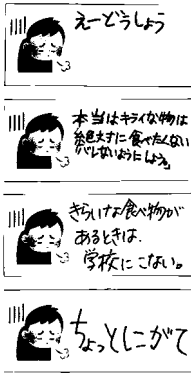 えーどうしよう
本当はキライな物は
絶たいに食べたくない
バレないようにしよう。
きらいな食べ物が
あるときは、
学校にこない。
ちょっとにがて